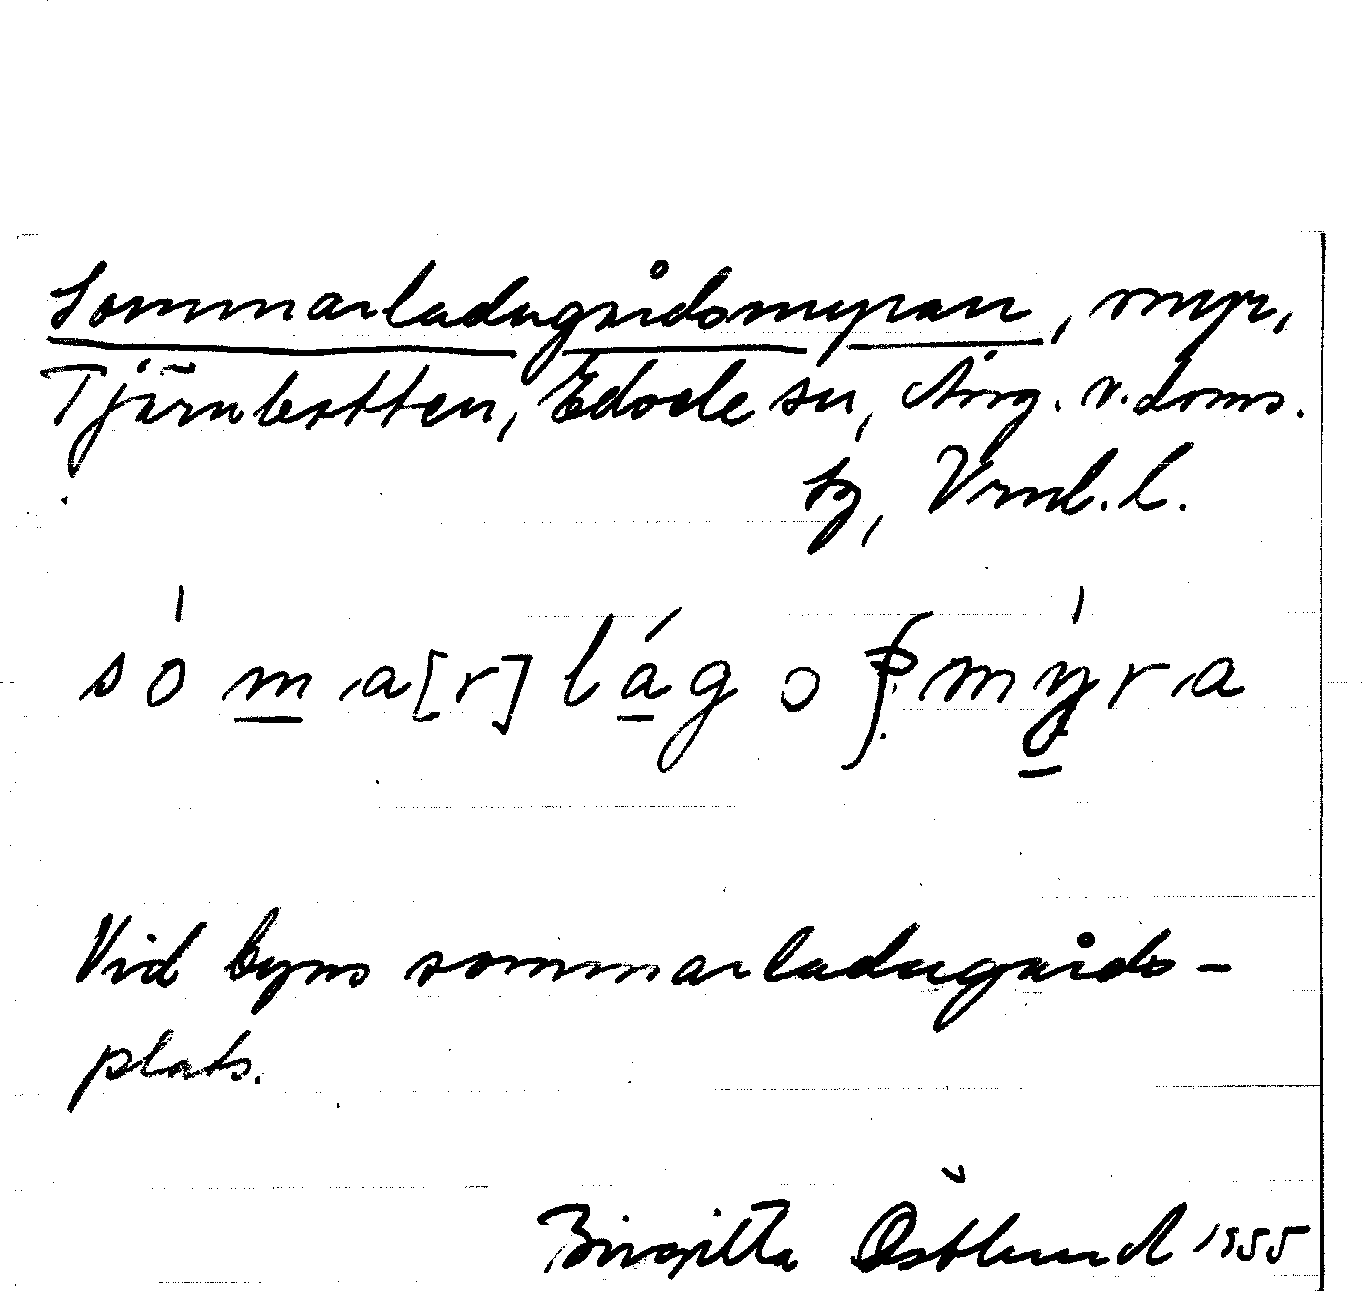 Sommarladugårdsmyran, myr,
Tjärnbotten, Edsele sn, Ång. v. doms.
sg, Vrnl. L.
sómа[r]lágoʃmýra
Vid byns sommarladugårds-
plats.
Birgitta Östlund 1955